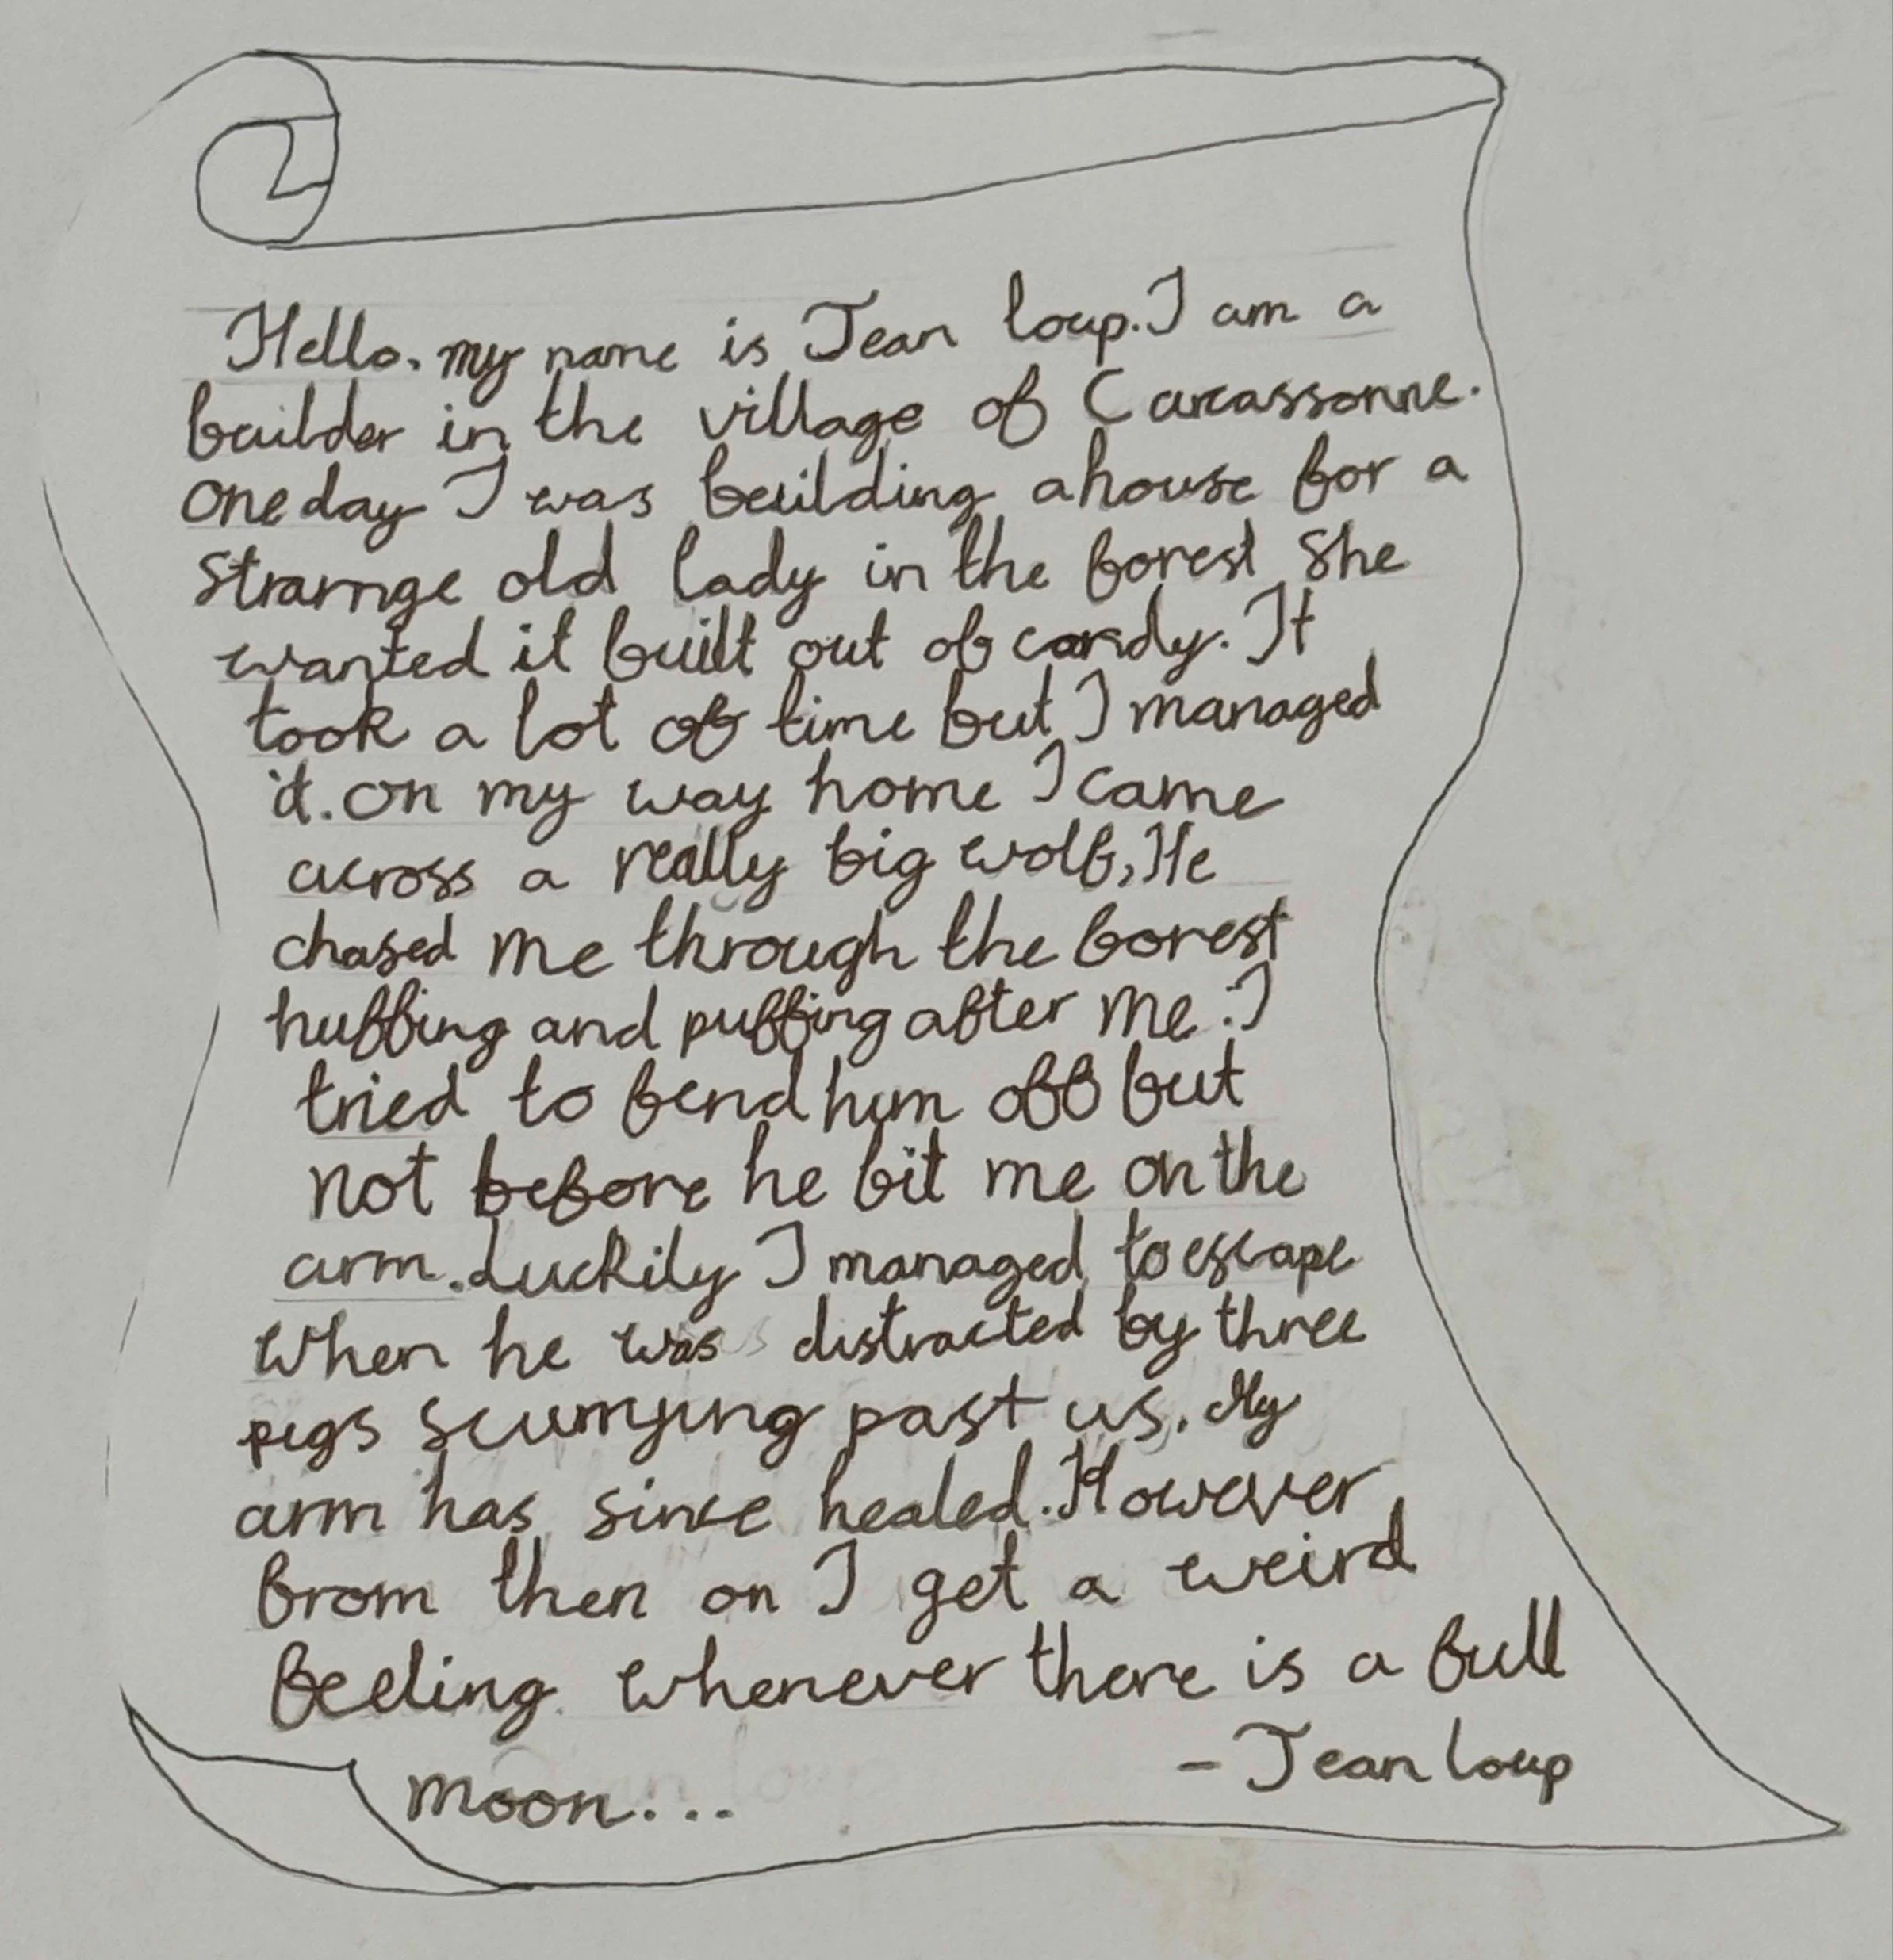 Hello. my name is Jean loup. I am a
builder in the village of Carcassonne.
One day I was building a house for a
strange old lady in the forest She
wanted it built out of candy. It
took a lot of time but I managed
it. on my way home I came
across a really big wolf, He
chased me through the forest
huffing and puffing after me. I
tried to fend him off but
not before he bit me on the
arm. Luckily I managed to escape
when he was distracted by three
pigs scurrying past us. My
arm has since healed. However
from then on I get a weird
feeling whenever there is a full
moon...
- Jean loup